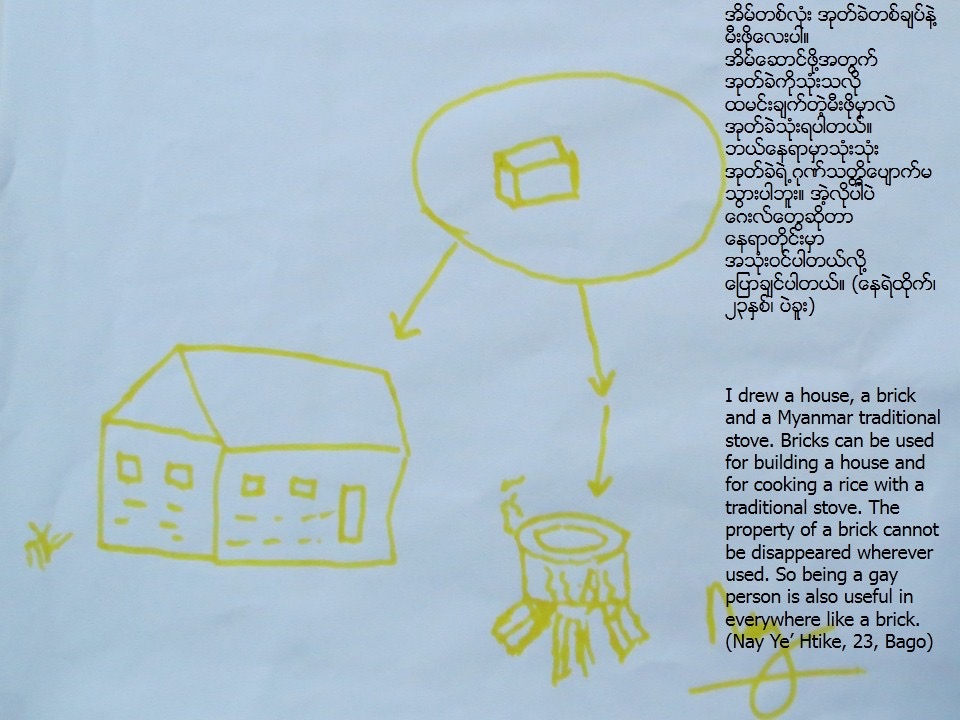 အိမ်တစ်လုံး အုတ်ခဲတစ်ချပ်နဲ့
မီးဖိုလေးပါ။
အိမ်ဆောင်ဖို့အတွက်
အုတ်ခဲကိုသုံးသလို
ထမင်းချက်တဲ့မီးဖိုမှာလဲ
အုတ်ခဲသုံးရပါတယ်။
ဘယ်နေရာမှာသုံးသုံး
အုတ်ခဲရဲ့ဂုဏ်သတ္တိပျောက်မ
သွားပါဘူး။ အဲ့လိုပါပဲ
ဂေးလ်တွေဆိုတာ
နေရာတိုင်းမှာ
အသုံးဝင်ပါတယ်လို့
ပြောချင်ပါတယ်။ (နေရဲထိုက်၊
၂၃နှစ်၊ ပဲခူး)
I drew a house, a brick
and a Myanmar traditional
stove. Bricks can be used
for building a house and
for cooking a rice with a
traditional stove. The
property of a brick cannot
be disappeared wherever
used. So being a gay
person is also useful in
everywhere like a brick.
(Nay Ye’ Htike, 23, Bago)